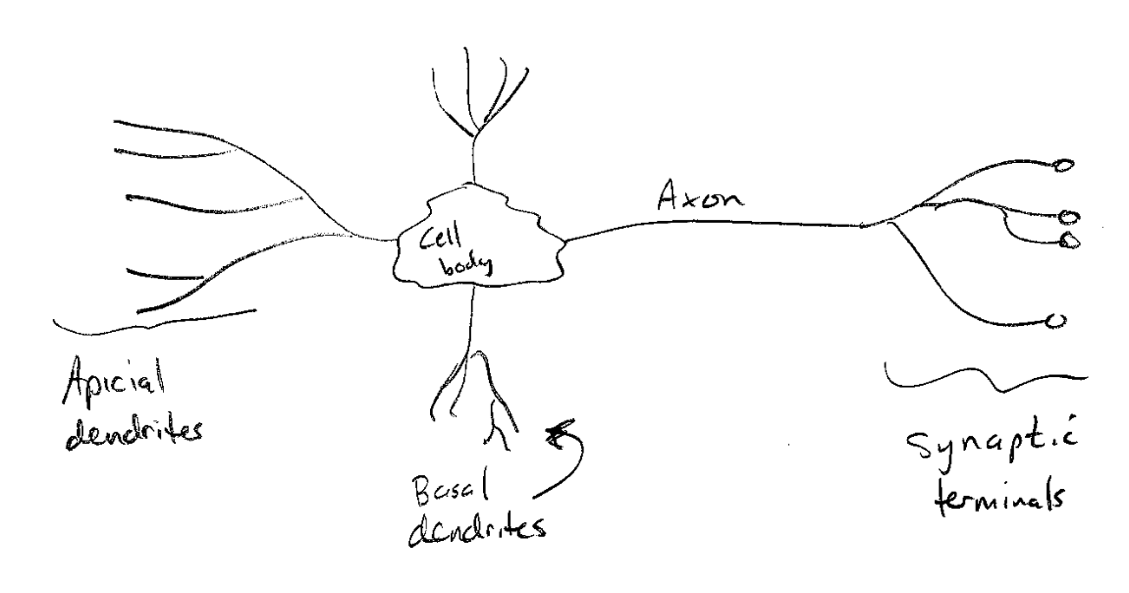 Axon
Cell
body
Apicial
dendrites
Basal
dendrites
Synaptic
terminals